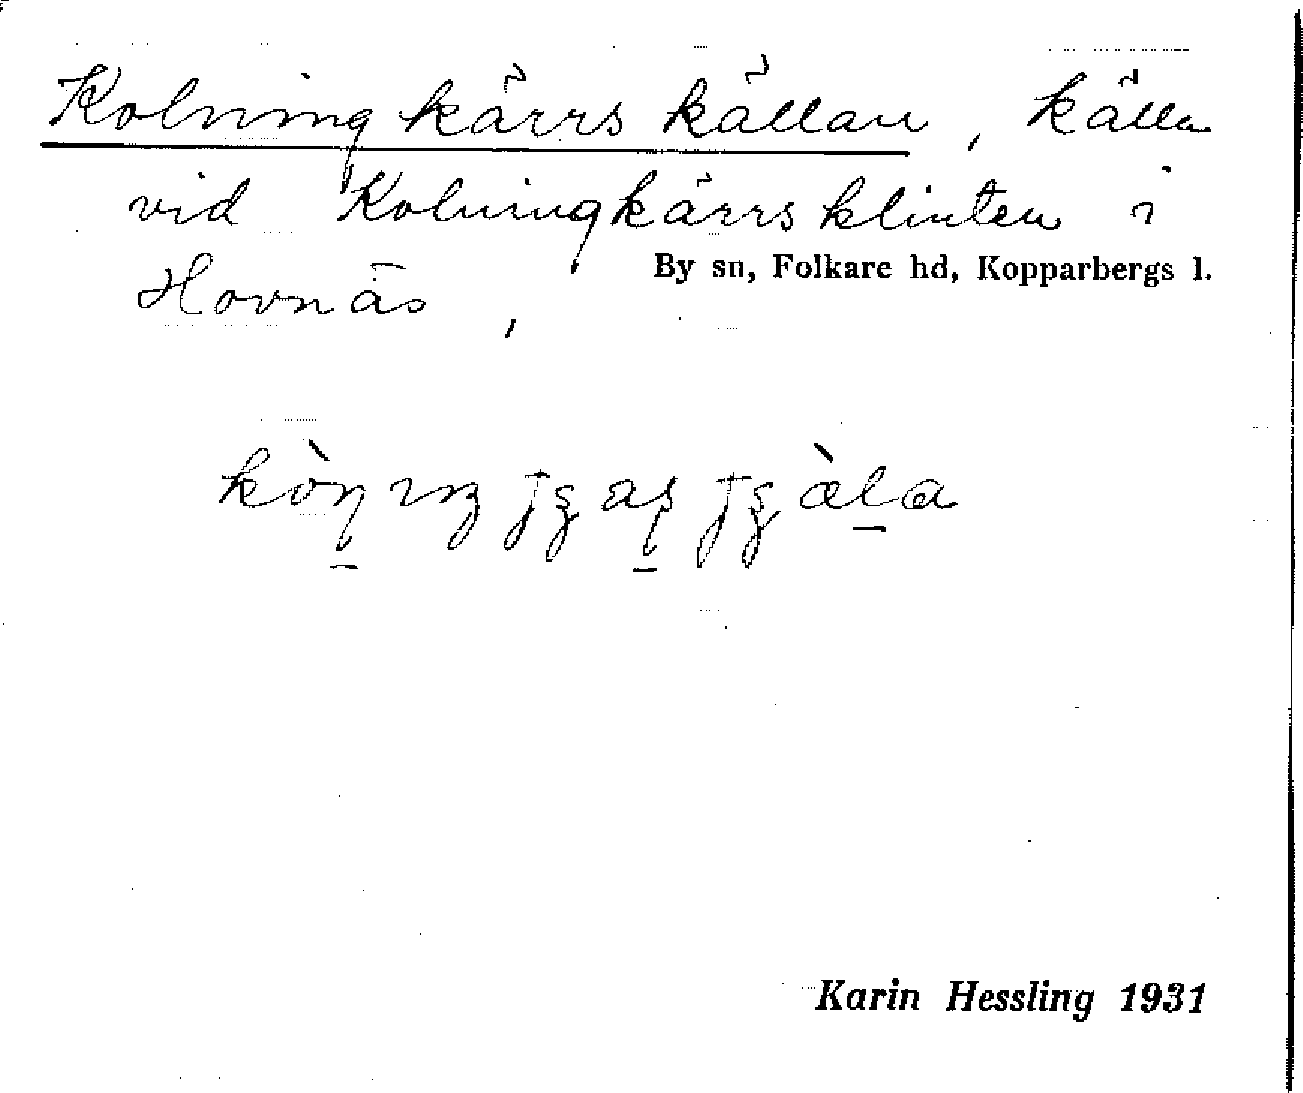 Kolningkärrskällan, källa
vid Kolningkärrsklinten i
By sn, Folkare hd, Kopparbergs l.
Hovnäs,
Karin Hessling 1931